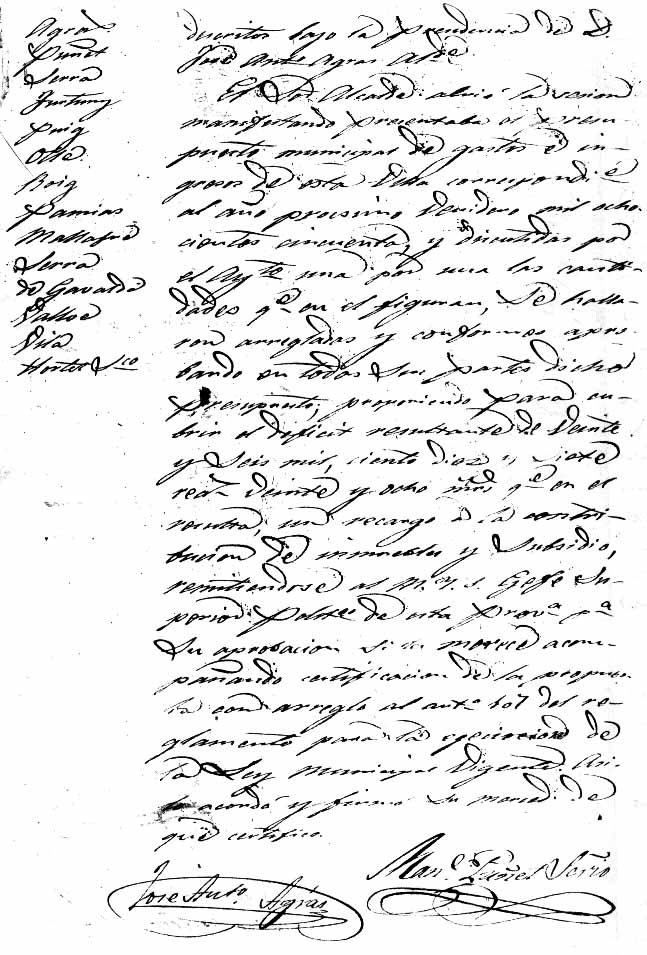 Agras
Puñet
Serra
Juncuny
Puig
Ollé
Roig
Pamias
Mallafré
Serra
de Gavaldá
Vallvé
Vila
Hortet Sco
descritos bajo la presidencia de D.
José Anto Agras Alde
El Sor Alcalde abrió la sesion
manifestando presentaba el presu-
puesto municipal de gastos é in-
gresos de esta Villa correspondte
al año procsimo venidero mil ocho-
cientos cincuenta, y discutidas por
el Aytto una por una las canti-
dades qe en el figuran, se halla-
ron arregladas y conformes apro-
bando en todas sus partes dicho
presupuesto, proponiendo para cu-
brir el deficit resultante de veinte
y seis mil, ciento diez y siete
reas veinte y ocho mrs qe en el
resulta, un recargo á la contri-
bucion de inmuebles y subsidio,
remitiendose al M. Y. S. Gefe Su-
perior Polco de esta Prova pa
su aprobacion si la merece acom-
pañando certificacion de la propues-
ta con arreglo al arto 107 del re-
glamento para la ejecucion de
la Ley municipal vigente. Asi
lo acordó y firma su merced de
que certifico.
José Anto Agrás
Manl Srio